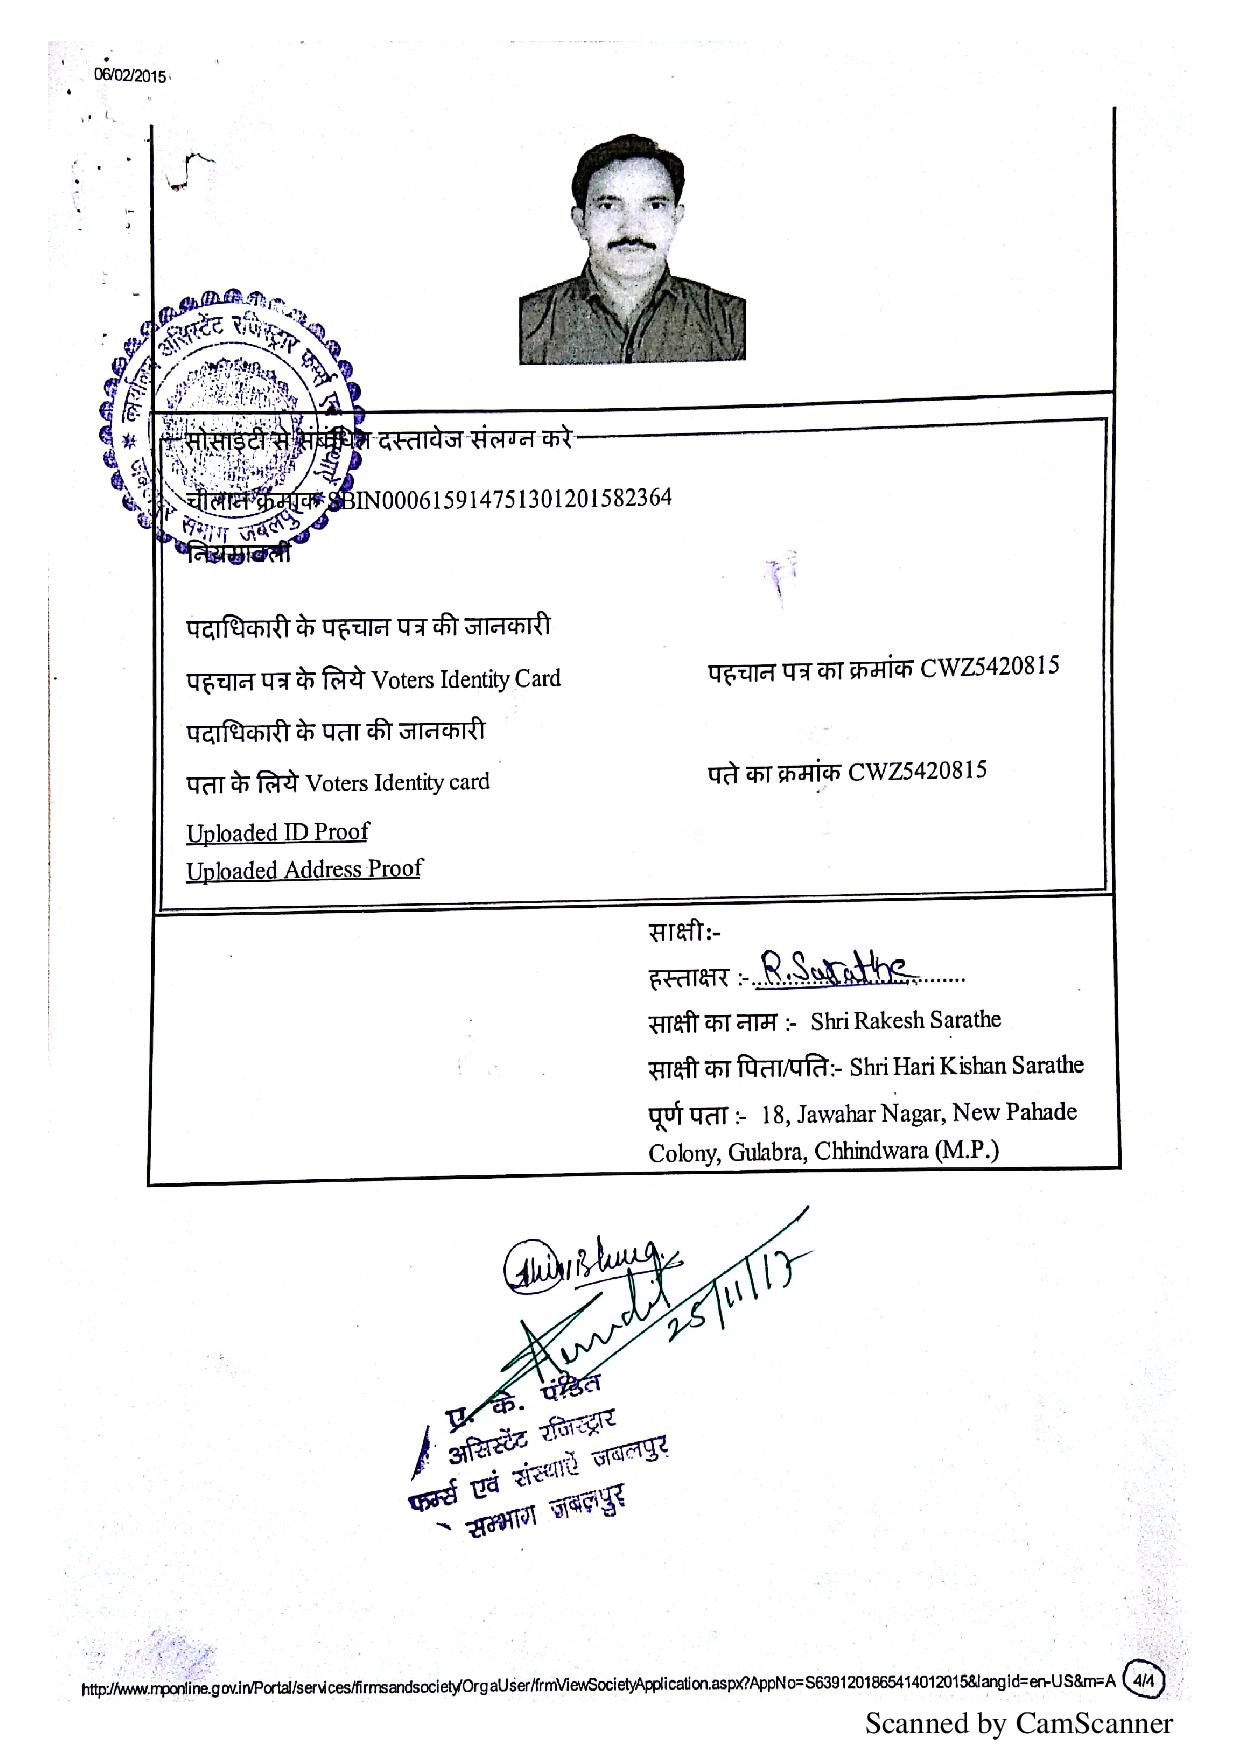 06/02/2015
कार्यालय असिस्टेंट रजिस्ट्रार फर्म्स एवं संस्थाएं
* जबलपुर संभाग जबलपुर *
सोसाइटी से संबंधित दस्तावेज संलग्न करे
चीलान क्रमांक SBIN000615914751301201582364
नियमावली
पदाधिकारी के पहचान पत्र की जानकारी
पहचान पत्र के लिये Voters Identity Card पहचान पत्र का क्रमांक CWZ5420815
पदाधिकारी के पता की जानकारी
पता के लिये Voters Identity card पते का क्रमांक CWZ5420815
Uploaded ID Proof
Uploaded Address Proof
साक्षी:-
हस्ताक्षर :-..R.Sarathe..........
साक्षी का नाम :- Shri Rakesh Sarathe
साक्षी का पिता/पति:- Shri Hari Kishan Sarathe
पूर्ण पता :- 18, Jawahar Nagar, New Pahade
Colony, Gulabra, Chhindwara (M.P.)
25/11/17
ए. के. पंडित
असिस्टेंट रजिस्ट्रार
फर्म्स एवं संस्थाऐं जबलपुर
सम्भाग जबलपुर
http://www.mponline.gov.in/Portal/services/firmsandsociety/OrgaUser/frmViewSocietyApplication.aspx?AppNo=S6391201865414012015&langid=en-US&m=A 4/4
Scanned by CamScanner